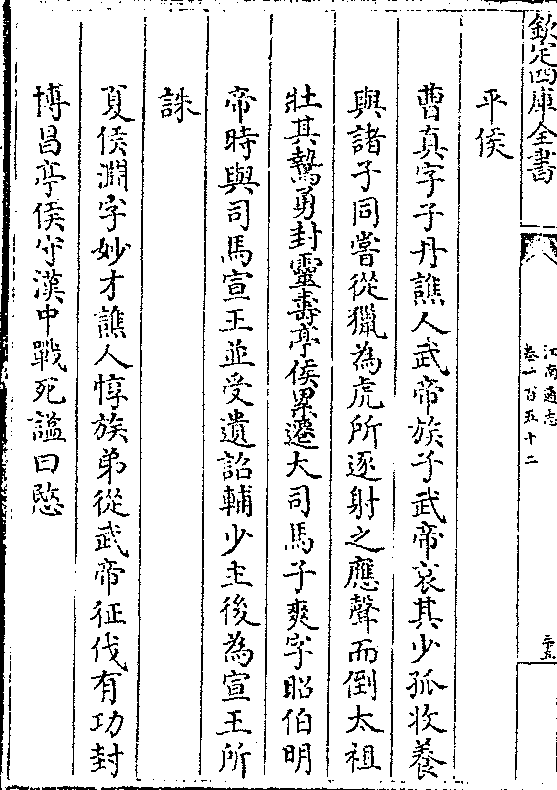 欽定四庫全書
江南通志
卷一百五十二
三十五
平侯
曹真字子丹譙人武帝族子武帝哀其少孤收養
與諸子同嘗從獵為虎所逐射之應聲而倒太祖
壯其鷙勇封靈壽亭侯累遷大司馬子爽字昭伯明
帝時與司馬宣王並受遺詔輔少主後為宣王所
誅
夏侯淵字妙才譙人惇族弟從武帝征伐有功封
博昌亭侯守漢中戰死諡曰愍